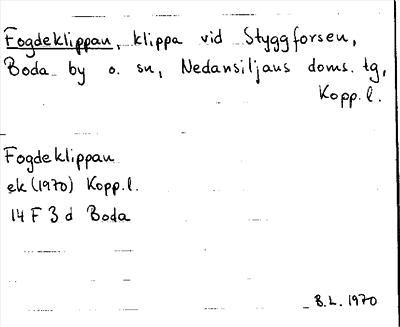 Fogdeklippan, klippa vid Styggforsen,
Boda by o. sn, Nedansiljans doms. tg,
Kopp.l.
Fogdeklippan
ek (1970) Kopp.l.
14 F 3 d Boda
B.L. 1970